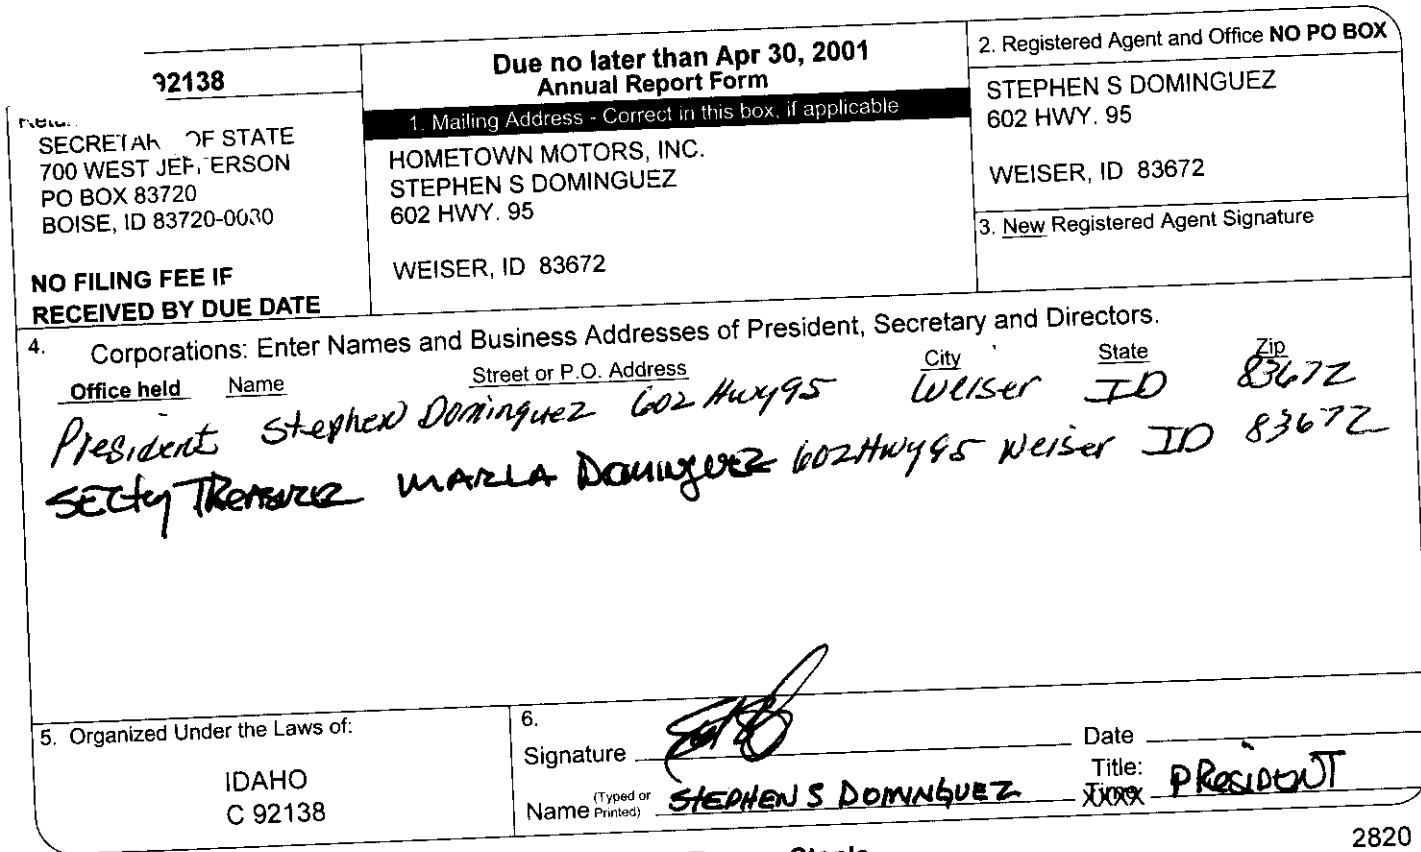 92138
SECRETAR OF STATE
700 WEST JEFFERSON
PO BOX 83720
BOISE, ID 83720-0080
NO FILING FEE IF
RECEIVED BY DUE DATE
Due no later than Apr 30, 2001
Annual Report Form
1. Mailing Address - Correct in this box, if applicable
HOMETOWN MOTORS, INC.
STEPHEN S DOMINGUEZ
602 HWY. 95
WEISER, ID 83672
2. Registered Agent and Office NO PO BOX
STEPHEN S DOMINGUEZ
602 HWY. 95
WEISER, ID 83672
3. New Registered Agent Signature
4. Corporations: Enter Names and Business Addresses of President, Secretary and Directors.
Office held Name Street or P.O. Address City State Zip
President Stephen Dominguez 602 Hwy 95 Weiser ID 83672
SECty Treasurer MARLA Dominguez 602 Hwy 95 Weiser ID 83672
5. Organized Under the Laws of:
IDAHO
C 92138
6.
Signature
Date
Name (Typed or Printed) STEPHEN S DOMINGUEZ
Title: PRESIDENT
2820